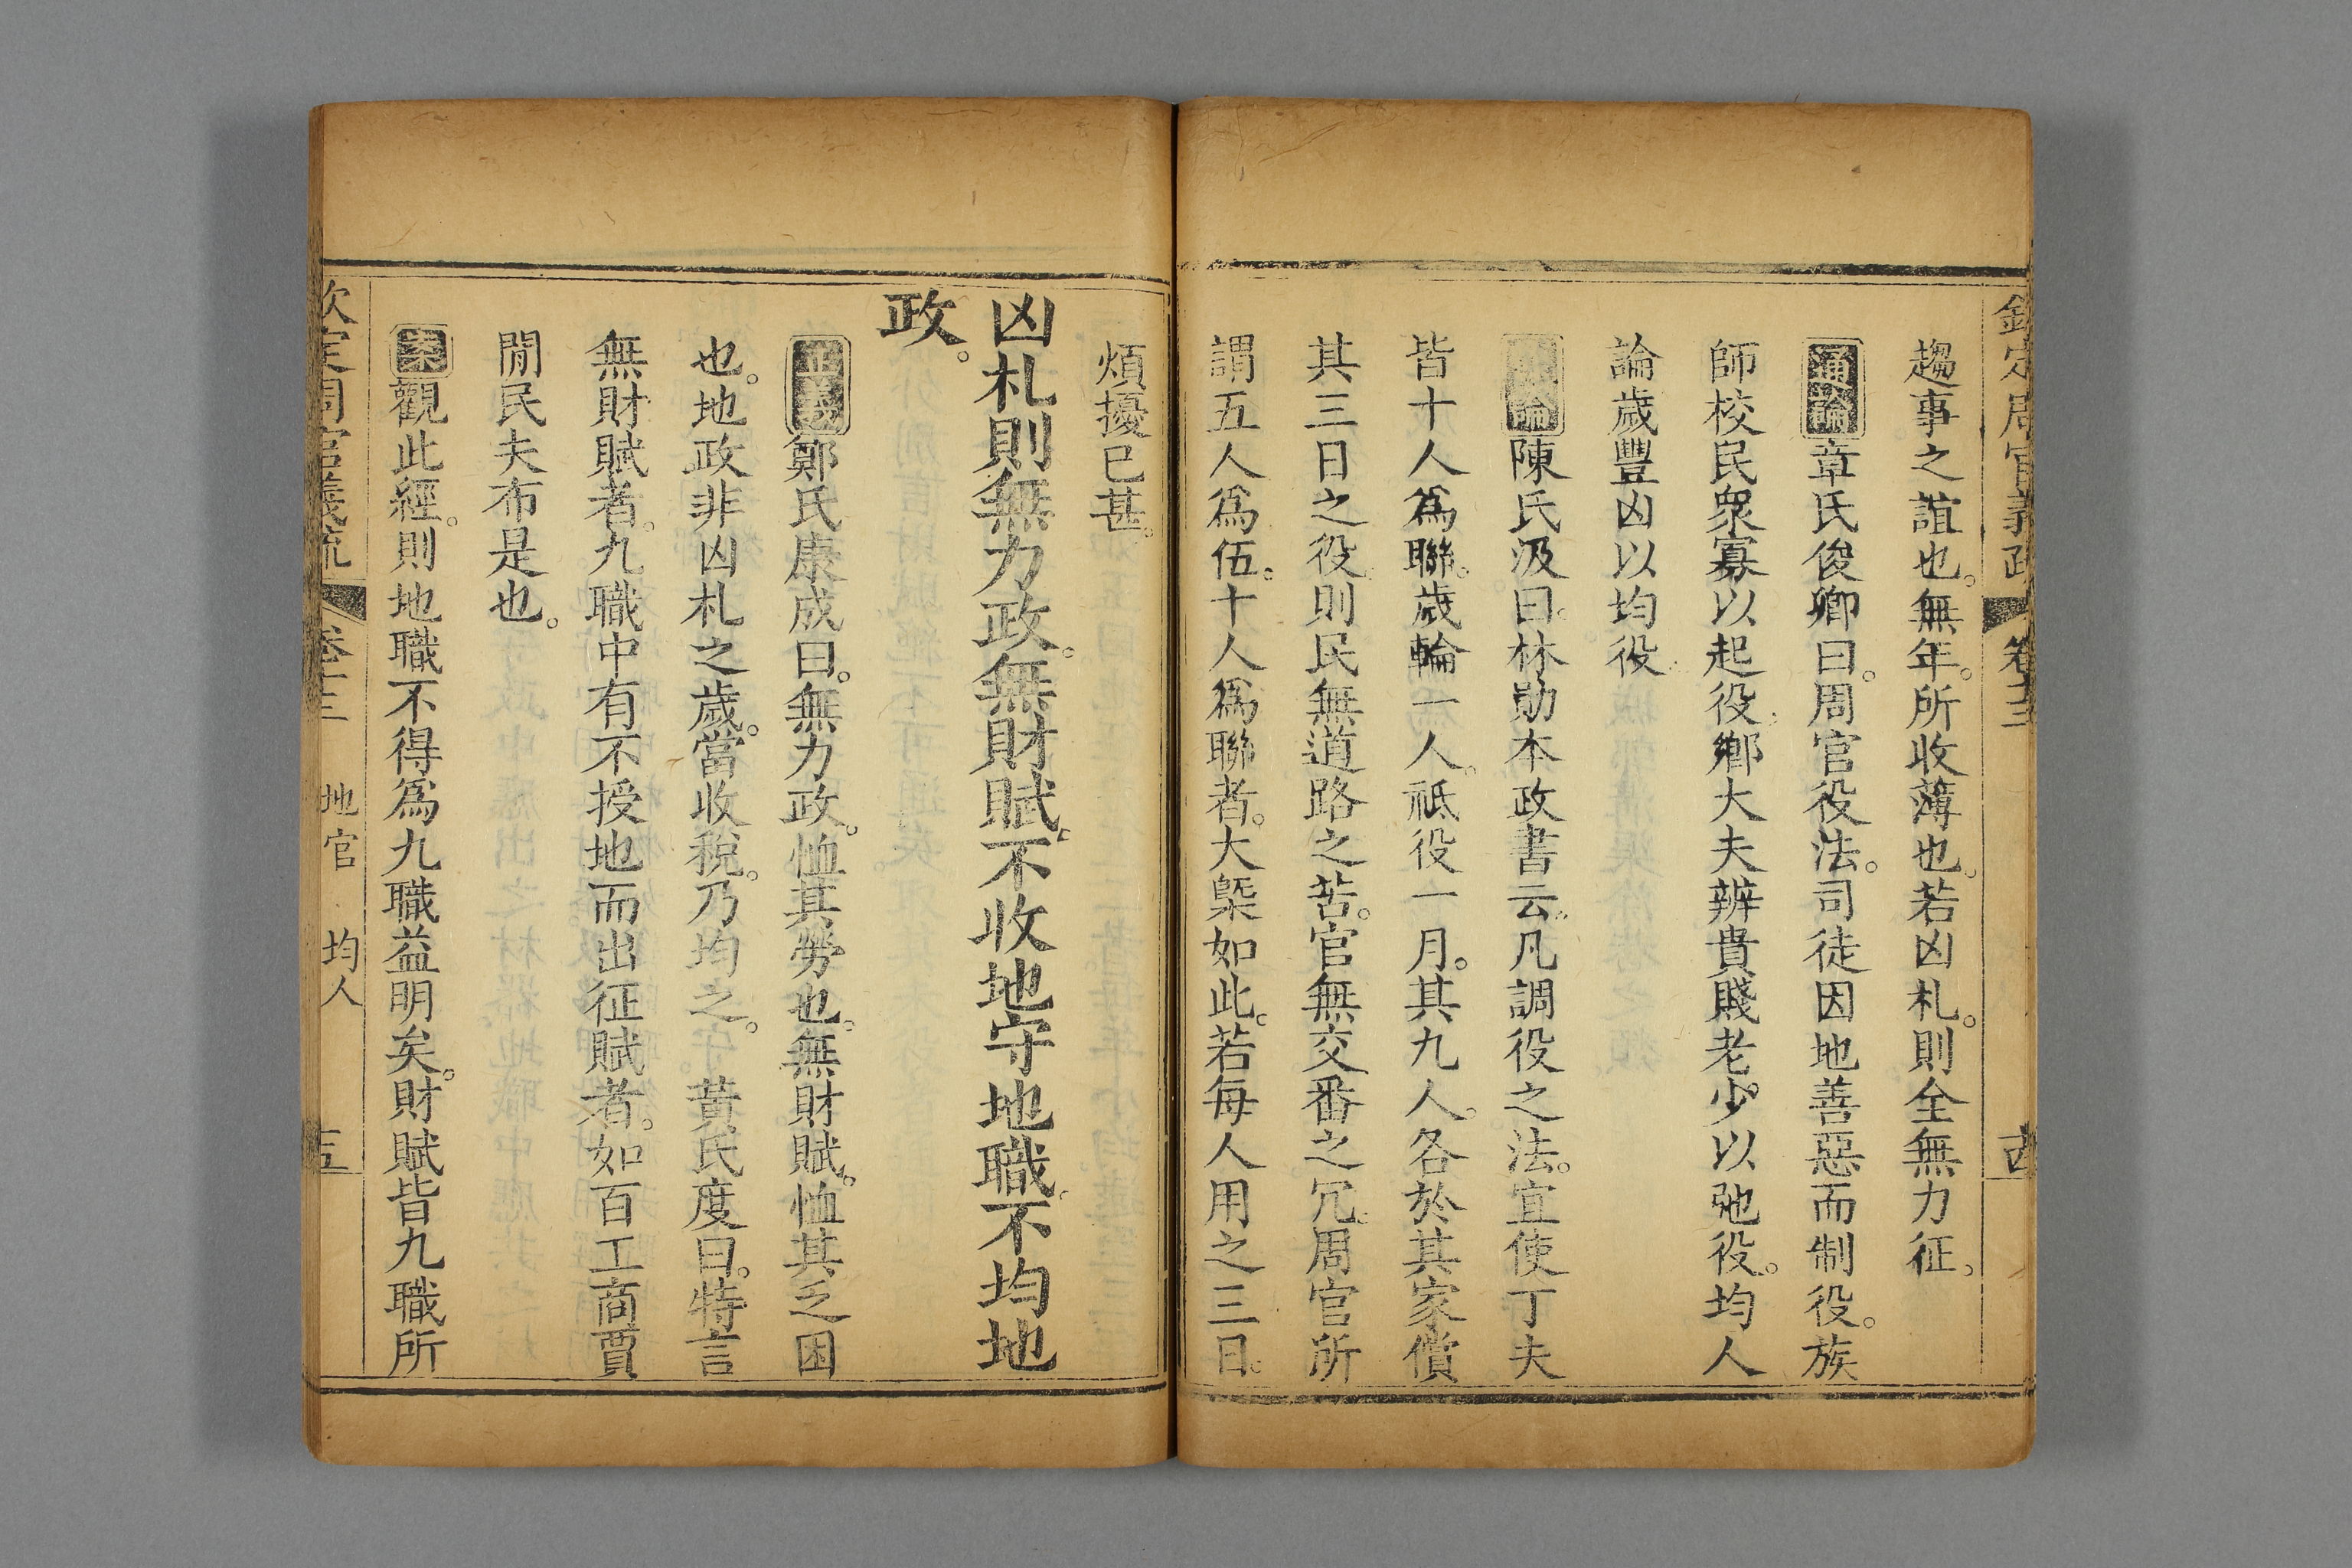 欽定周官義疏 卷十三 十四
趨事之誼也。無年。所收薄也。若凶札。則全無力征。
通論章氏俊卿曰。周官役法。司徒因地善惡而制役。族
師校民衆寡以起役。鄉大夫辨貴賤老少。以弛役。均人
論歲豐凶以均役。
論陳氏汲曰。林勛本政書云。凡調役之法。宜使丁夫
皆十人爲聯。歲輪一人。祗役一月。其九人。各於其家償
其三日之役。則民無道路之苦。官無交番之冗。周官所
謂五人爲伍。十人爲聯者。大槩如此。若每人用之三日。
煩擾已甚。
凶札則無力政。無財賦。不收地守地職。不均地
政。
正義鄭氏康成曰。無力政。恤其勞也。無財賦。恤其乏困
也。地政非凶札之歲。當收稅。乃均之。 黃氏度曰。特言
無財賦者。九職中有不授地而出征賦者。如百工商賈
閒民夫布是也。
案觀此經。則地職不得爲九職益明矣。財賦皆九職所
欽定周官義疏 卷十三 地官 均人 十五